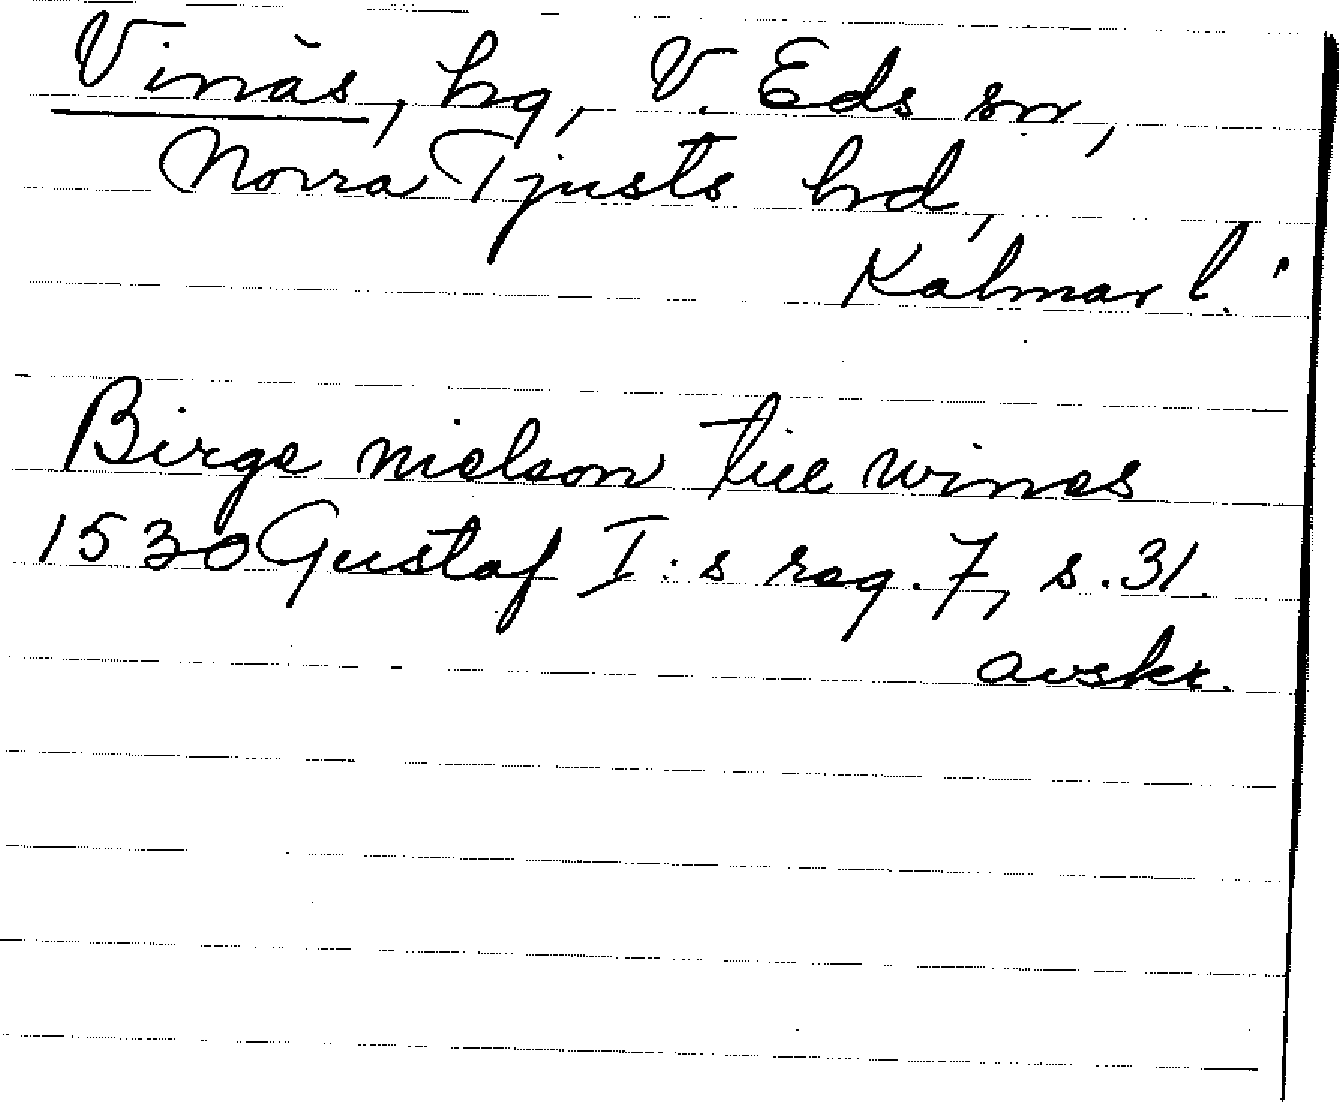 Vinäs, hg, V. Eds sn,
Norra Tjusts hd,
Kalmar l.
Birge nielson till wines
1530 Gustaf I:s reg. 7, s. 31.
avskr.